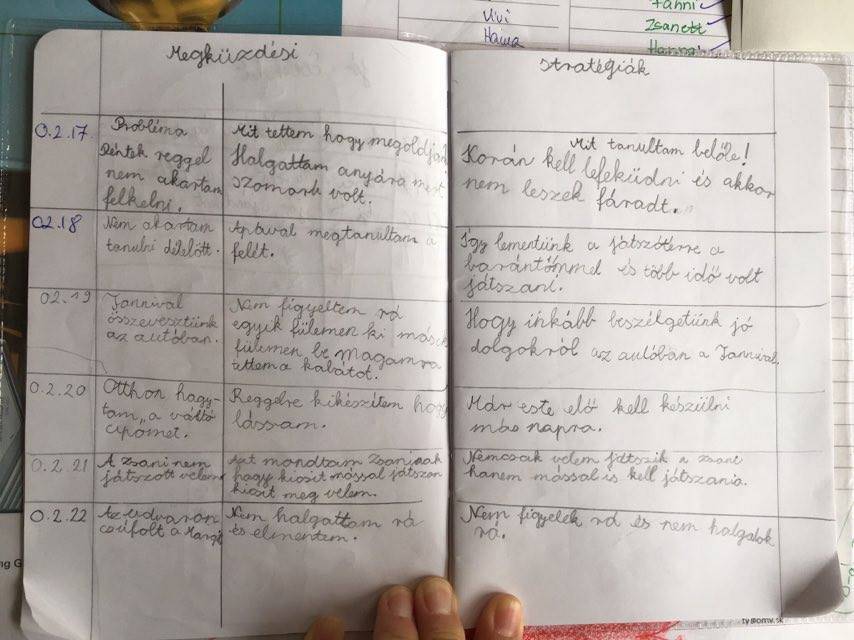 Vivi
Hanna
Fanni
Zsanett
Hanna
Megküzdési
stratégiák
0.2.17.
Probléma
Péntek reggel
nem akartam
felkelni.
Mit tettem hogy megoldjam
Halgattam anyára mert
szomorú volt.
Mit tanultam belőle!
Korán kell lefeküdni és akkor
nem leszek fáradt.
02.18
Nem akartam
tanulni délelött.
Apával megtanultam a
felét.
Így lementünk a játszótérre a
barántőmmel és több idő volt
játszani.
02.19
Jannival
összevesztünk
az autóban.
Nem figyeltem rá
egyik fülemen ki másik
fülemen be magamra
ettem a kabátot.
Hogy inkább beszélgetünk jó
dolgokról az autóban a Jannival.
0.2.20
Otthon hagy-
tam "a váltó
cipömet.
Reggelre kikészítem hogy
lássam.
Már este elő kell készülni
más napra.
0.2.21
A Zsani nem
játszott velem
Azt mondtam Zsaninak
hogy kicsit mással játszon
kicsit meg velem.
Nemcsak velem játszik a zsani
hanem mással is kell játszania.
0.2.22
Az udvaron
csúfolt a Margit
Nem halgattam rá
és elmentem.
Nem figyelek rá és nem halgatok
rá.
ty@omv.sk